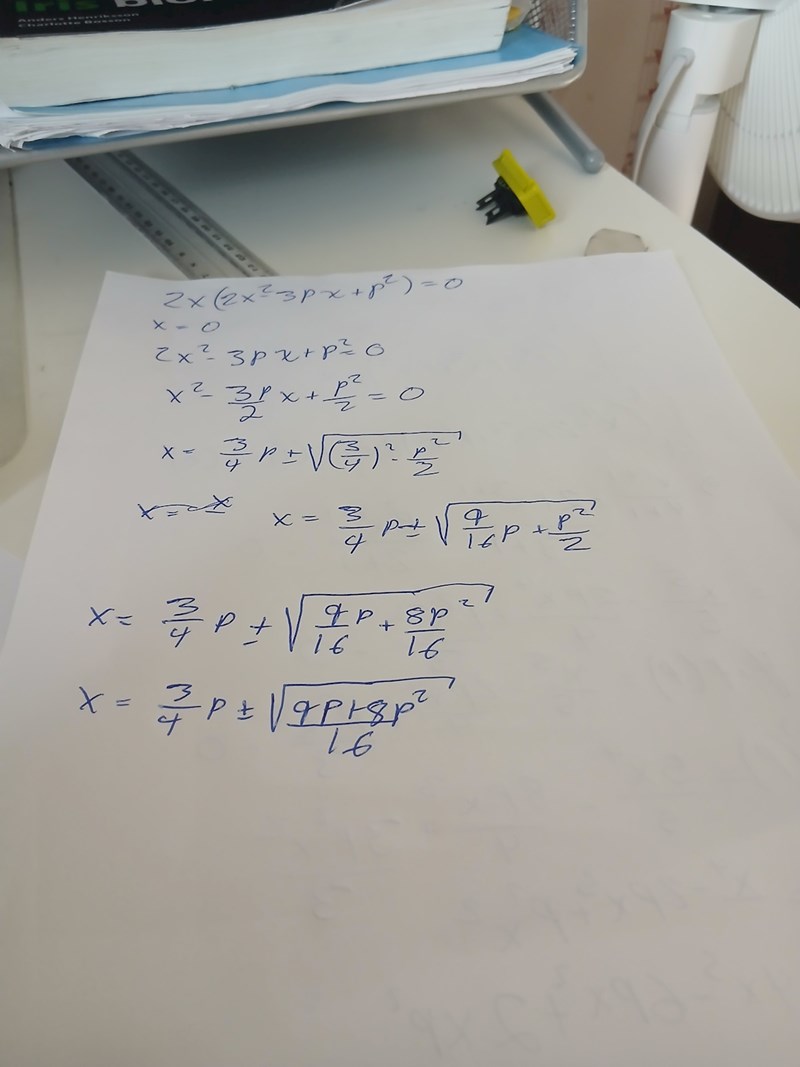 Iris Bio
Anders Henriksson
Charlotte Bosson
2x(2x²-3px+p²)=0
x=0
2x²-3px+p²=0
x²-\frac{3p}{2}x+\frac{p²}{2}=0
x=\frac{3}{4}p±√((\frac{3}{4})²-\frac{p²}{2})
x=\frac{3}{4}p±√(\frac{9}{16}p+\frac{p²}{2})
x=\frac{3}{4}p±√(\frac{9p}{16}+\frac{8p²}{16})
x=\frac{3}{4}p±√(\frac{9p+8p²}{16})